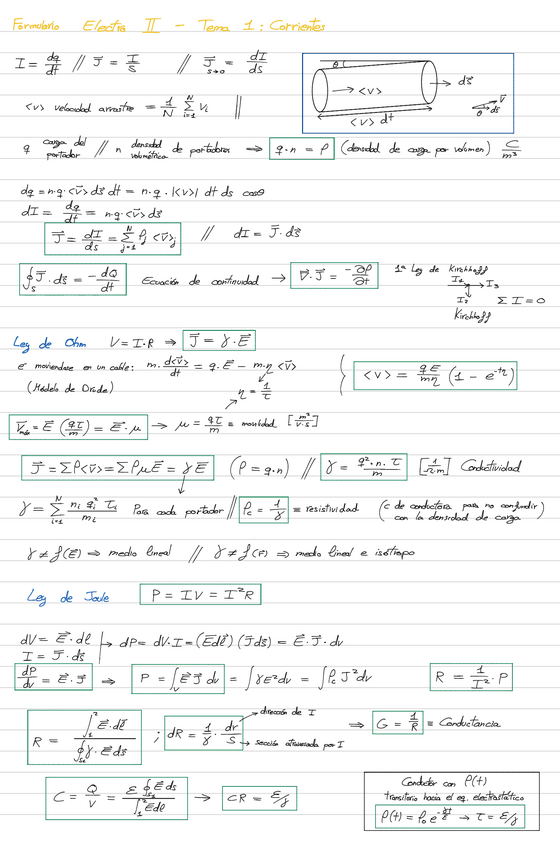 Formulario Electro II - Tema 1: Corrientes
I = dq/dt // J⃗ = I/S // J⃗ = dI/ds
S→0
θ <v> ds⃗
<v> dt
v⃗ θ ds
<v> velocidad arrastre = 1/N Σ_{i=1}^{N} v_i ||
q carga del portador // n densidad volumétrica de portadores → q·n = ρ (densidad de carga por volumen) C/m³
dq = n·q·<v⃗> ds⃗ dt = n·q·|<v>| dt ds cosθ
dI = dq/dt = n·q·<v⃗> ds⃗
J⃗ = dI/ds = Σ_{j=1}^{N} ρ_j <v⃗>_j // dI = J⃗·ds⃗
∮_S J⃗·ds⃗ = -dQ/dt Ecuación de continuidad → ∇·J⃗ = -∂ρ/∂t 1ª Ley de Kirchhoff
I₂ I₃ Σ I = 0
Kirchhoff
Ley de Ohm V = I·R ⇒ J⃗ = γ·E⃗
e⁻ moviendose en un cable: m·d<v⃗>/dt = q·E⃗ - m·η <v⃗>
<v> = qE/mη (1 - e^{-tη})
(Modelo de Drude) η = 1/τ
= E⃗ (qτ/m) = E⃗·μ → μ = qτ/m ≡ movilidad [m²/V·s]
J⃗ = Σρ<v⃗> = Σρμ E⃗ = γE⃗ (ρ = q·n) // γ = q²·n·τ/m [1/Ω·m] Conductividad
γ = Σ_{i=1}^{N} n_i q_i² τ_i/m_i Para cada portador // ρ_c = 1/γ ≡ resistividad (c de conductora para no confundir con la densidad de carga)
γ ≠ f(E⃗) ⇒ medio lineal // γ ≠ f(r⃗) ⇒ medio lineal e isótropo
Ley de Joule P = IV = I²R
dV = E⃗·dl⃗
I = J⃗·ds⃗
→ dP = dV·I = (E⃗dl⃗)(J⃗ds⃗) = E⃗·J⃗·dv
dP/dv = E⃗·J⃗ ⇒ P = ∫_V E⃗J⃗ dv = ∫γE²dv = ∫ρ_c J²dv R = 1/I²·P
R = ∫₁² E⃗·dl⃗ / ∮ γ·E⃗ds⃗ ; dR = 1/γ·dr/S ⇒ G = 1/R ≡ Conductancia
dirección de I
sección atravesada por I
C = Q/V = ε∮E⃗ds / ∫₁²E⃗dl → CR = ε/γ
Conductor con ρ(t)
transitorio hacia el eq. electrostático
ρ(t) = ρ₀ e^{-γt/ε} → τ = ε/γ